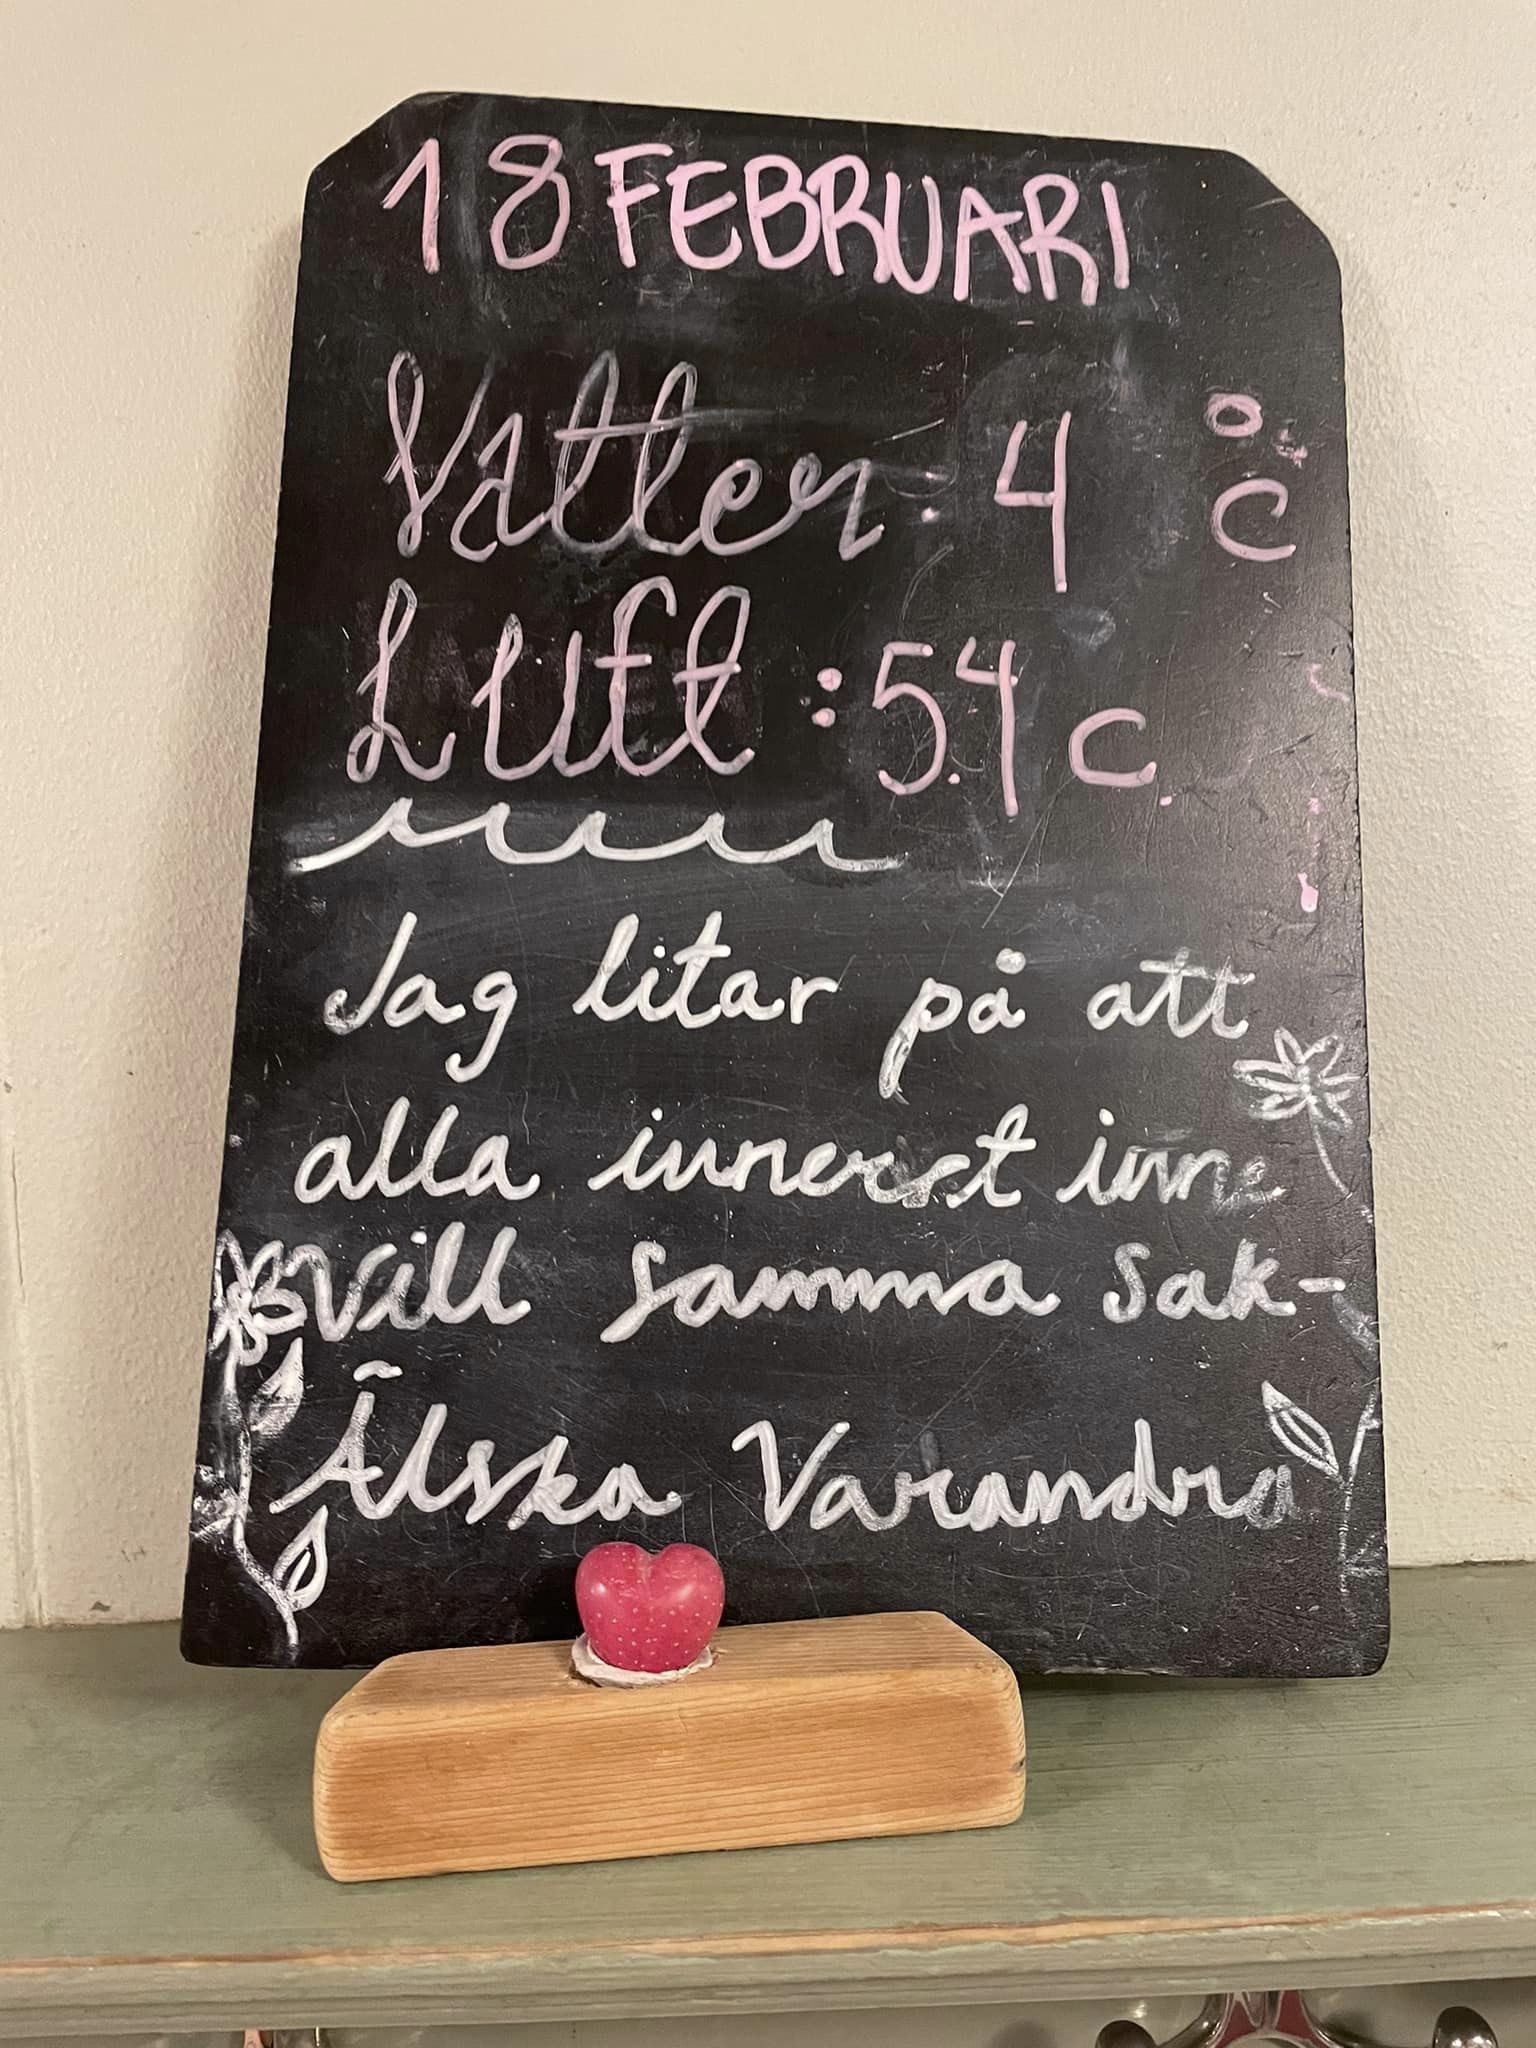 18 FEBRUARI
Vatten: 4 °C
Luft: 5.4 C
Jag litar på att
alla innerst inne
vill samma sak-
Älska Varandra